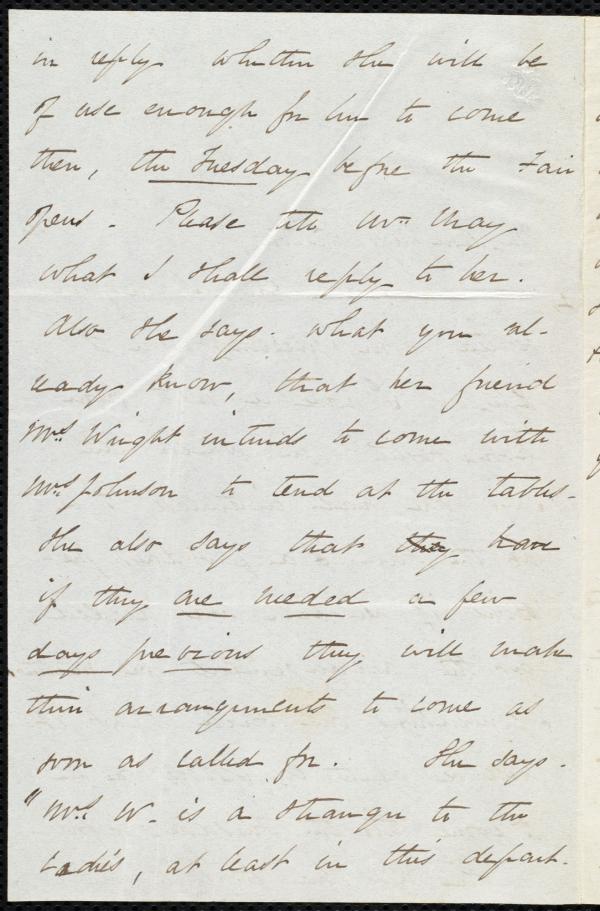 in reply whether she will be
of use enough for her to come
then, the Tuesday before the Fair
opens. Please tell Mrs May
what I shall reply to her.
Also she says. what you al-
ready know, that her friend
Mrs Wright intends to come with
Mrs Johnson to tend at the tables.
She also says that they have
if they are needed a few
days previous they will make
their arrangements to come as
soon as called for. She says.
"Mrs W. is a stranger to the
Ladies, at least in this depart-